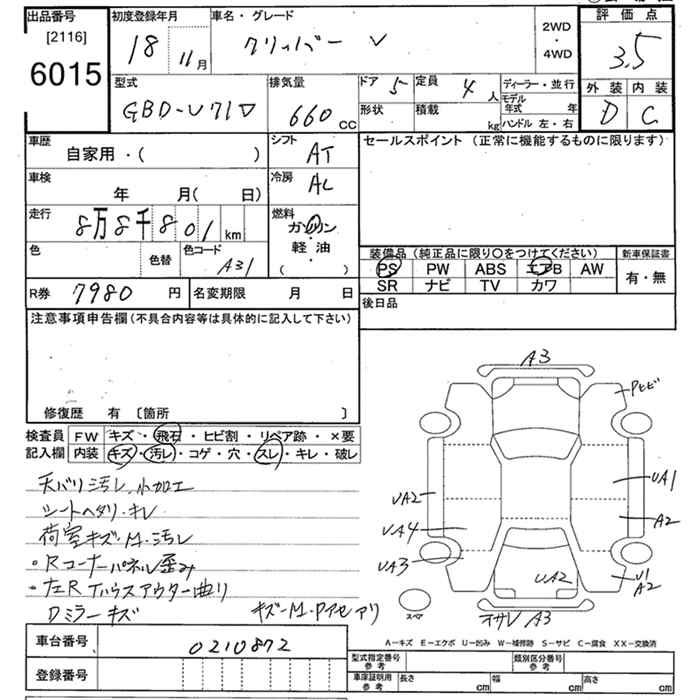 出品番号
[2116]
6015
初度登録年月
18 11月
車名・グレード
クリッパー V
2WD
・
4WD
評価点
3.5
外装 内装
D C
型式
GBD-U71V
排気量
660 cc
ドア 5
定員 4 人
形状
積載 kg
ディーラー・並行
モデル年式 年
ハンドル 左・右
車歴
自家用・( )
シフト
AT
セールスポイント (正常に機能するものに限ります)
車検
年 月( 日)
冷房
AC
走行
8万8千801 km
燃料
ガソリン
軽・油
( )
色
色替
色コード
A31
装備品 (純正品に限り〇をつけてください)
PS PW ABS エアB AW
SR ナビ TV カワ
新車保証書
有・無
R券 7980 円
名変期限 月 日
後日品
注意事項申告欄 (不具合内容等は具体的に記入して下さい)
修復歴 有 〔箇所 〕
検査員記入欄
FW キズ・飛石・ヒビ割・リペア跡・×要
内装 キズ・汚レ・コゲ・穴・スレ・キレ・破レ
天バリ汚レ、小加工
シートヘタリ・キレ
荷室キズ・M・汚レ
・Rコーナーパネル歪み
・左Rハウスアウター曲り
Dミラーキズ
キズ・M・Pアセアリ
A3
Pヒビ
UA1
A2
U1
A2
UA2
UA4
UA3
UA2
オサレ A3
スペア
A-キズ E-エクボ U-凹み W-補修跡 S-サビ C-腐食 XX-交換済
車台番号
0210872
登録番号
型式指定番号
参考
類別区分番号
参考
車庫証明用
参考
長さ cm
幅 cm
高さ cm